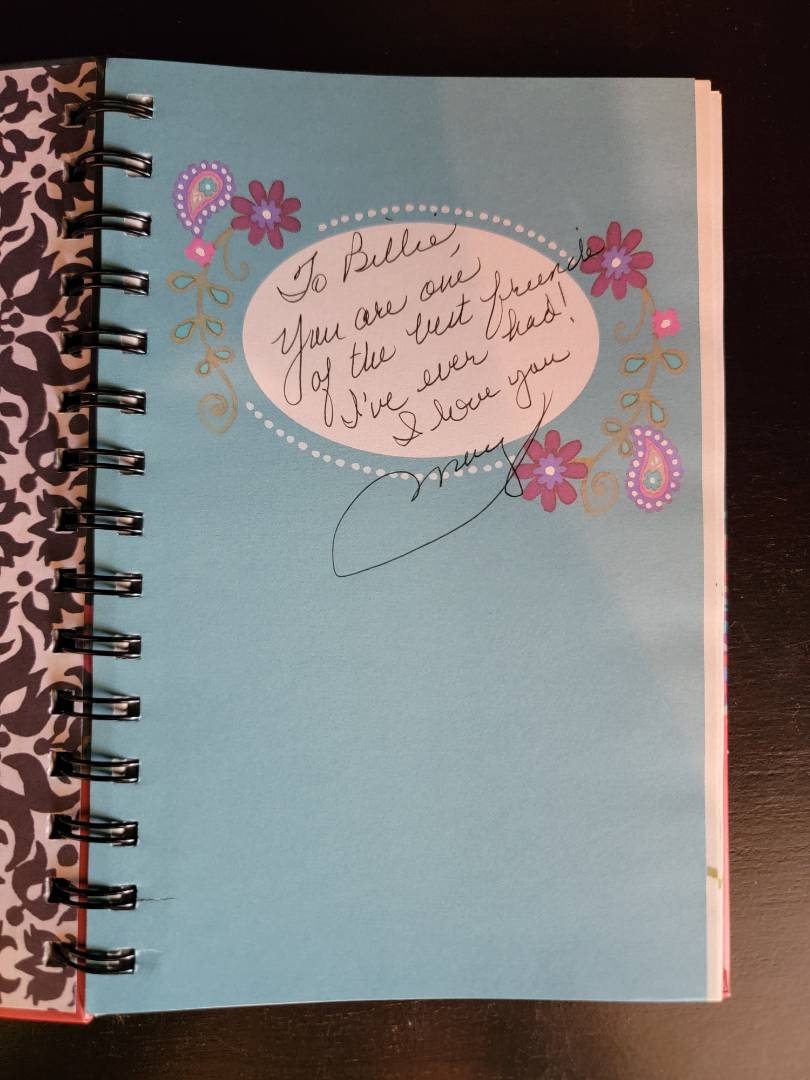 To Billie,
You are one
of the best friends
I've ever had!
I love you
Mary